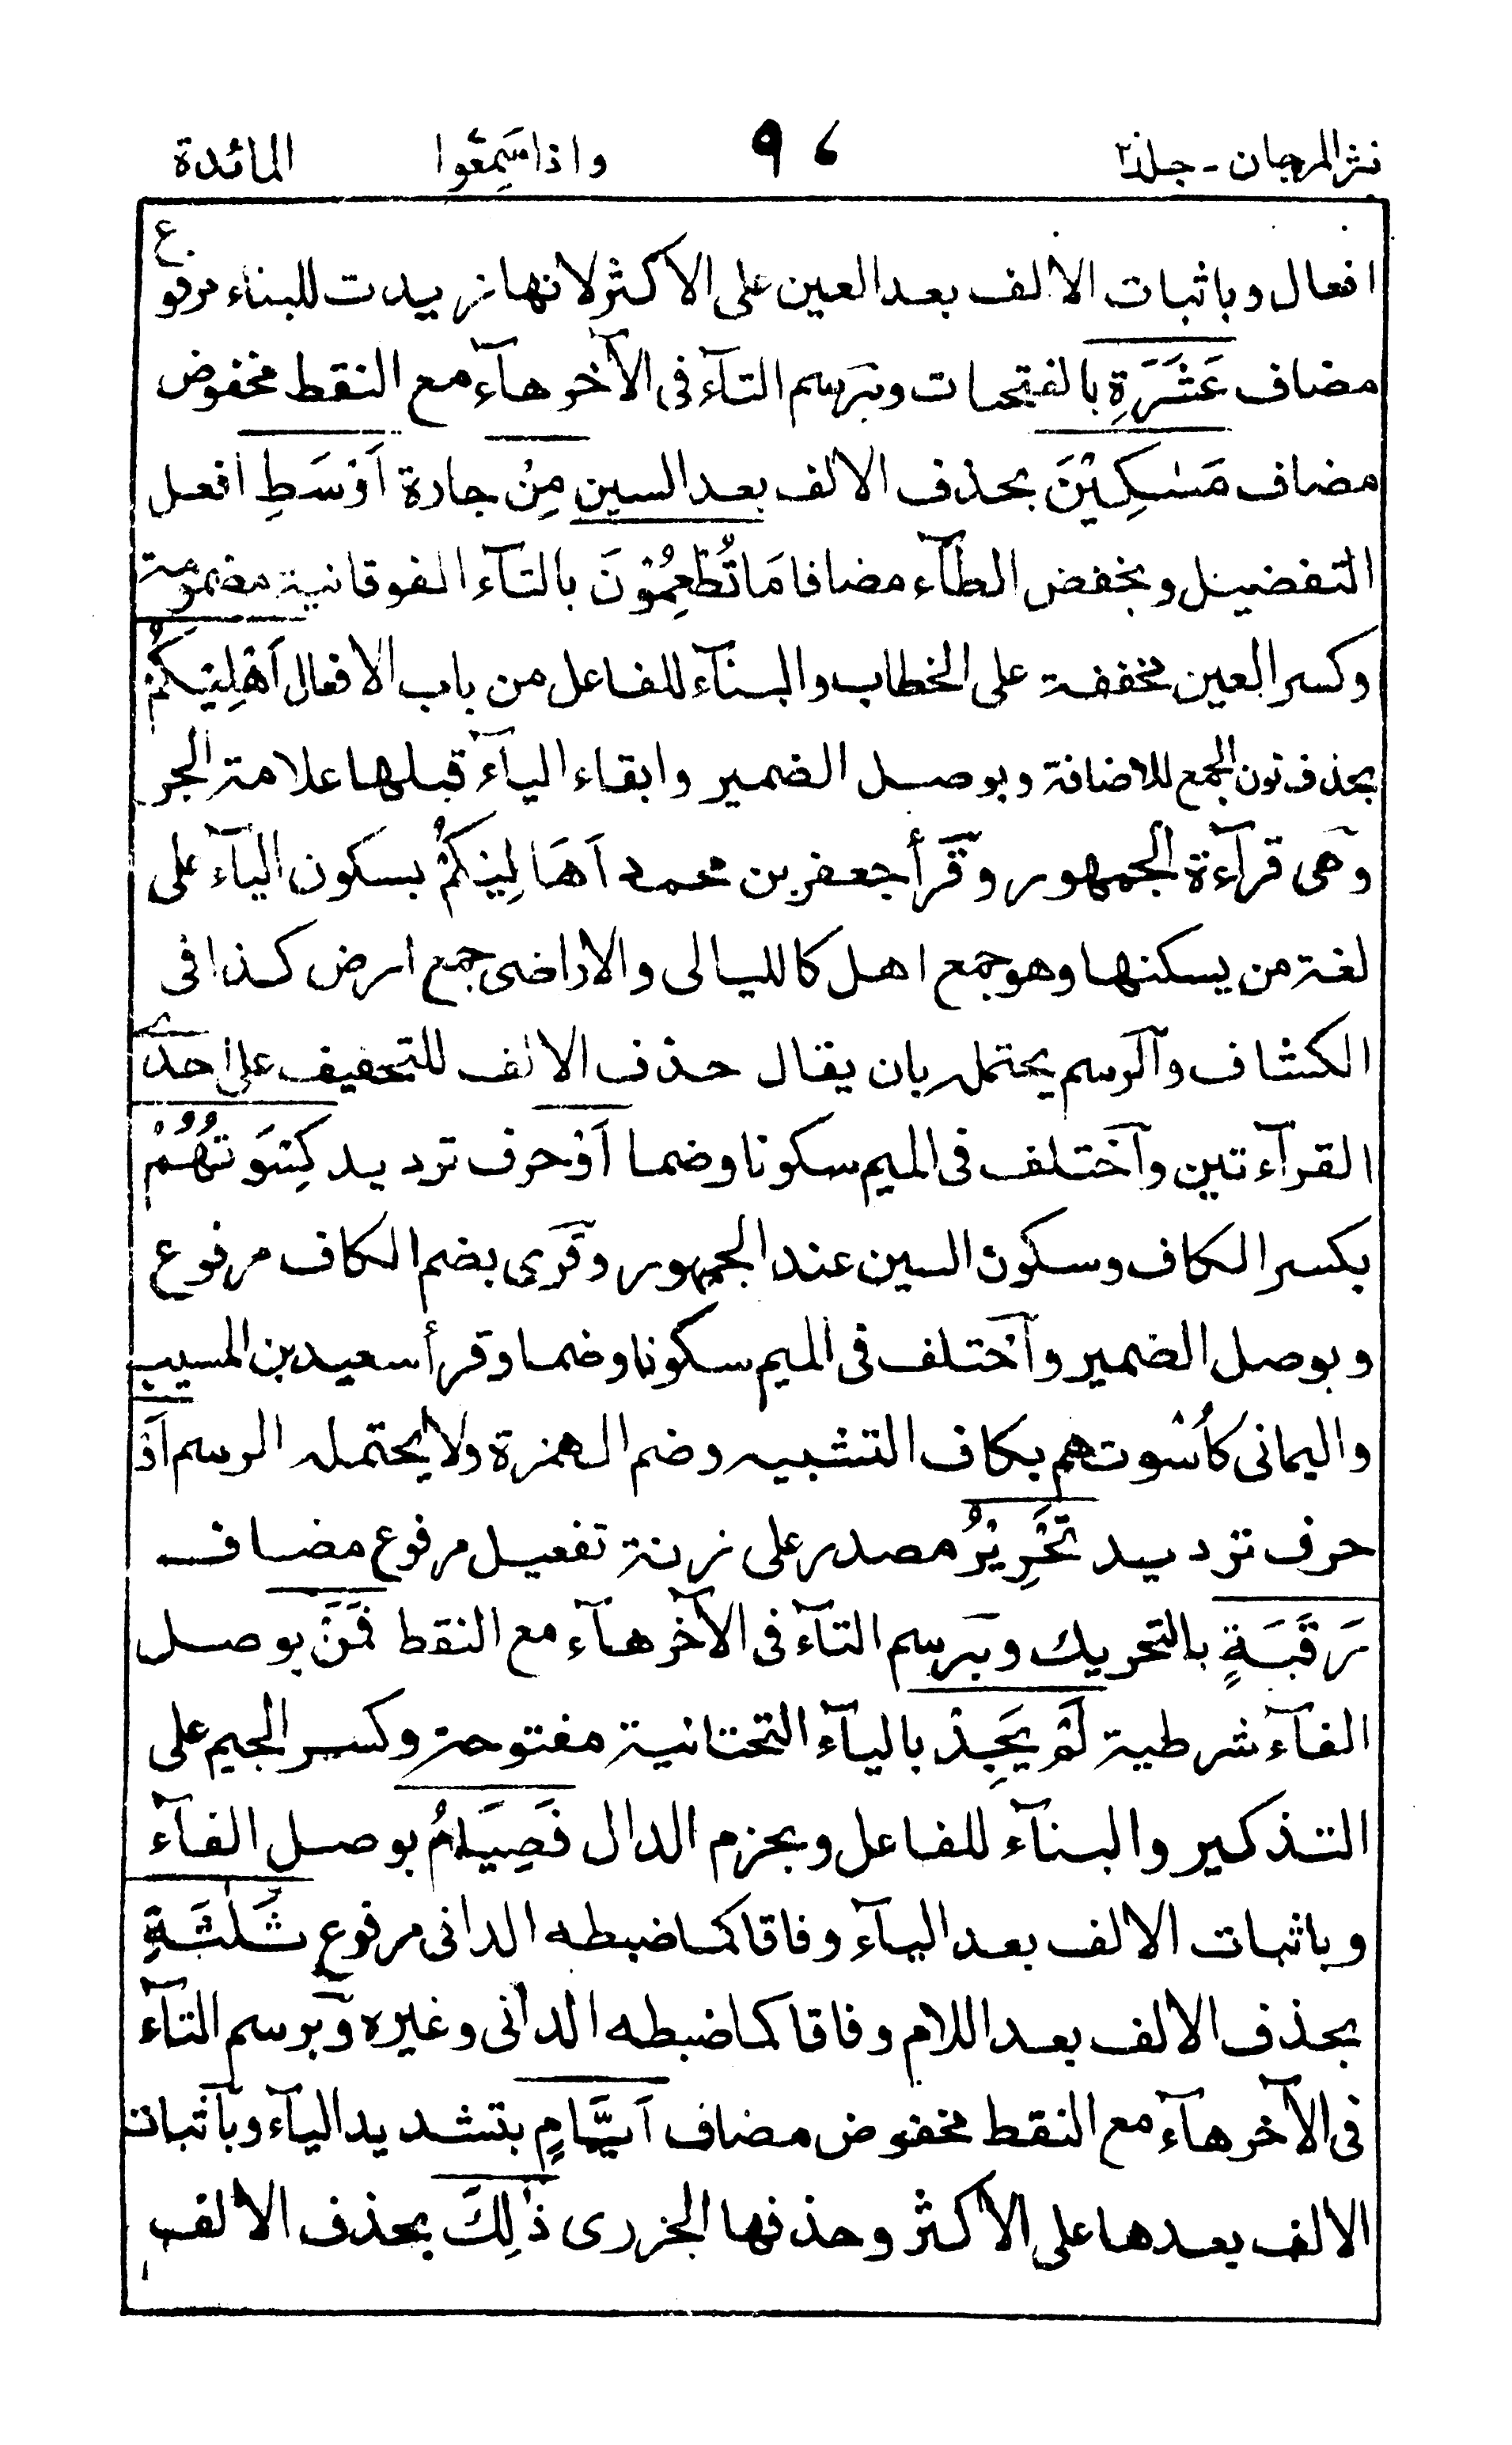 نثر المرجان - جلد٢ ٩٦ واذا سَمِعُوا المائدة
افعال وباثبات الالف بعد العين على الاكثر لانها زيدت للبناء مرفوع
مضاف عَشَرَةِ بالفتحات وبَرسم التآء فى الآخر هآء مع النقط مخفوض
مضاف مَسٰكِيْنَ بحذف الالف بعد السين مِنْ جارة اَوْسَطِ افعل
التفضيل وبخفض الطآء مضافا مَا تُطْعِمُوْنَ بالتآء الفوقانية مضمومة
وكسر العين مخففة على الخطاب والبنآء للفاعل من باب الافعال اَهْلِيْكُمْ
بحذف نون الجمع للاضافة وبوصل الضمير وابقاء اليآء قبلها علامة الجر
وهى قرآءة الجمهور وقرأ جعفر بن محمد اَهَالِيْكُمْ بسكون اليآء على
لغة من يسكنها وهو جمع اهل كالليالى والاراضى جمع ارض كذا فى
الكشاف وآلرسم يحتمله بان يقال حذف الالف للتخفيف على احدے
القرآءتين وآختلف فى الميم سكونا وضما اَوْ حرف ترديد كِسْوَتُهُمْ
بكسر الكاف وسكون السين عند الجمهور وقرى بضم الكاف مرفوع
وبوصل الضمير وآختلف فى الميم سكونا وضما وقرأ سعيد بن المسيب
واليمانى كاُسْوتهم بكاف التشبيه وضم الهمزة ولا يحتمله الرسم اَوْ
حرف ترديد تَحْرِيْرُ مصدر على زنة تفعيل مرفوع مضاف
رَقَبَةٍ بالتحريك وبَرسم التآء فى الآخر هآء مع النقط فَمَنْ بوصل
الفآء شرطية لَمْ يَجِدْ باليآء التحتانية مفتوحة وكسر الجيم على
التذكير والبنآء للفاعل وبجزم الدال فَصِيَامُ بوصل الفآء
وباثبات الالف بعد اليآء وفاقا كما ضبطه الدانى مرفوع ثَلٰثَةِ
بحذف الالف بعد اللام وفاقا كما ضبطه الدانى وغيره وبرسم التآء
فى الآخر هآء مع النقط مخفوض مضاف اَيَّامٍ بتشديد اليآء وبآثبات
الالف بعدها على الاكثر وحذفها الجزرى ذٰلِكَ بحذف الالف